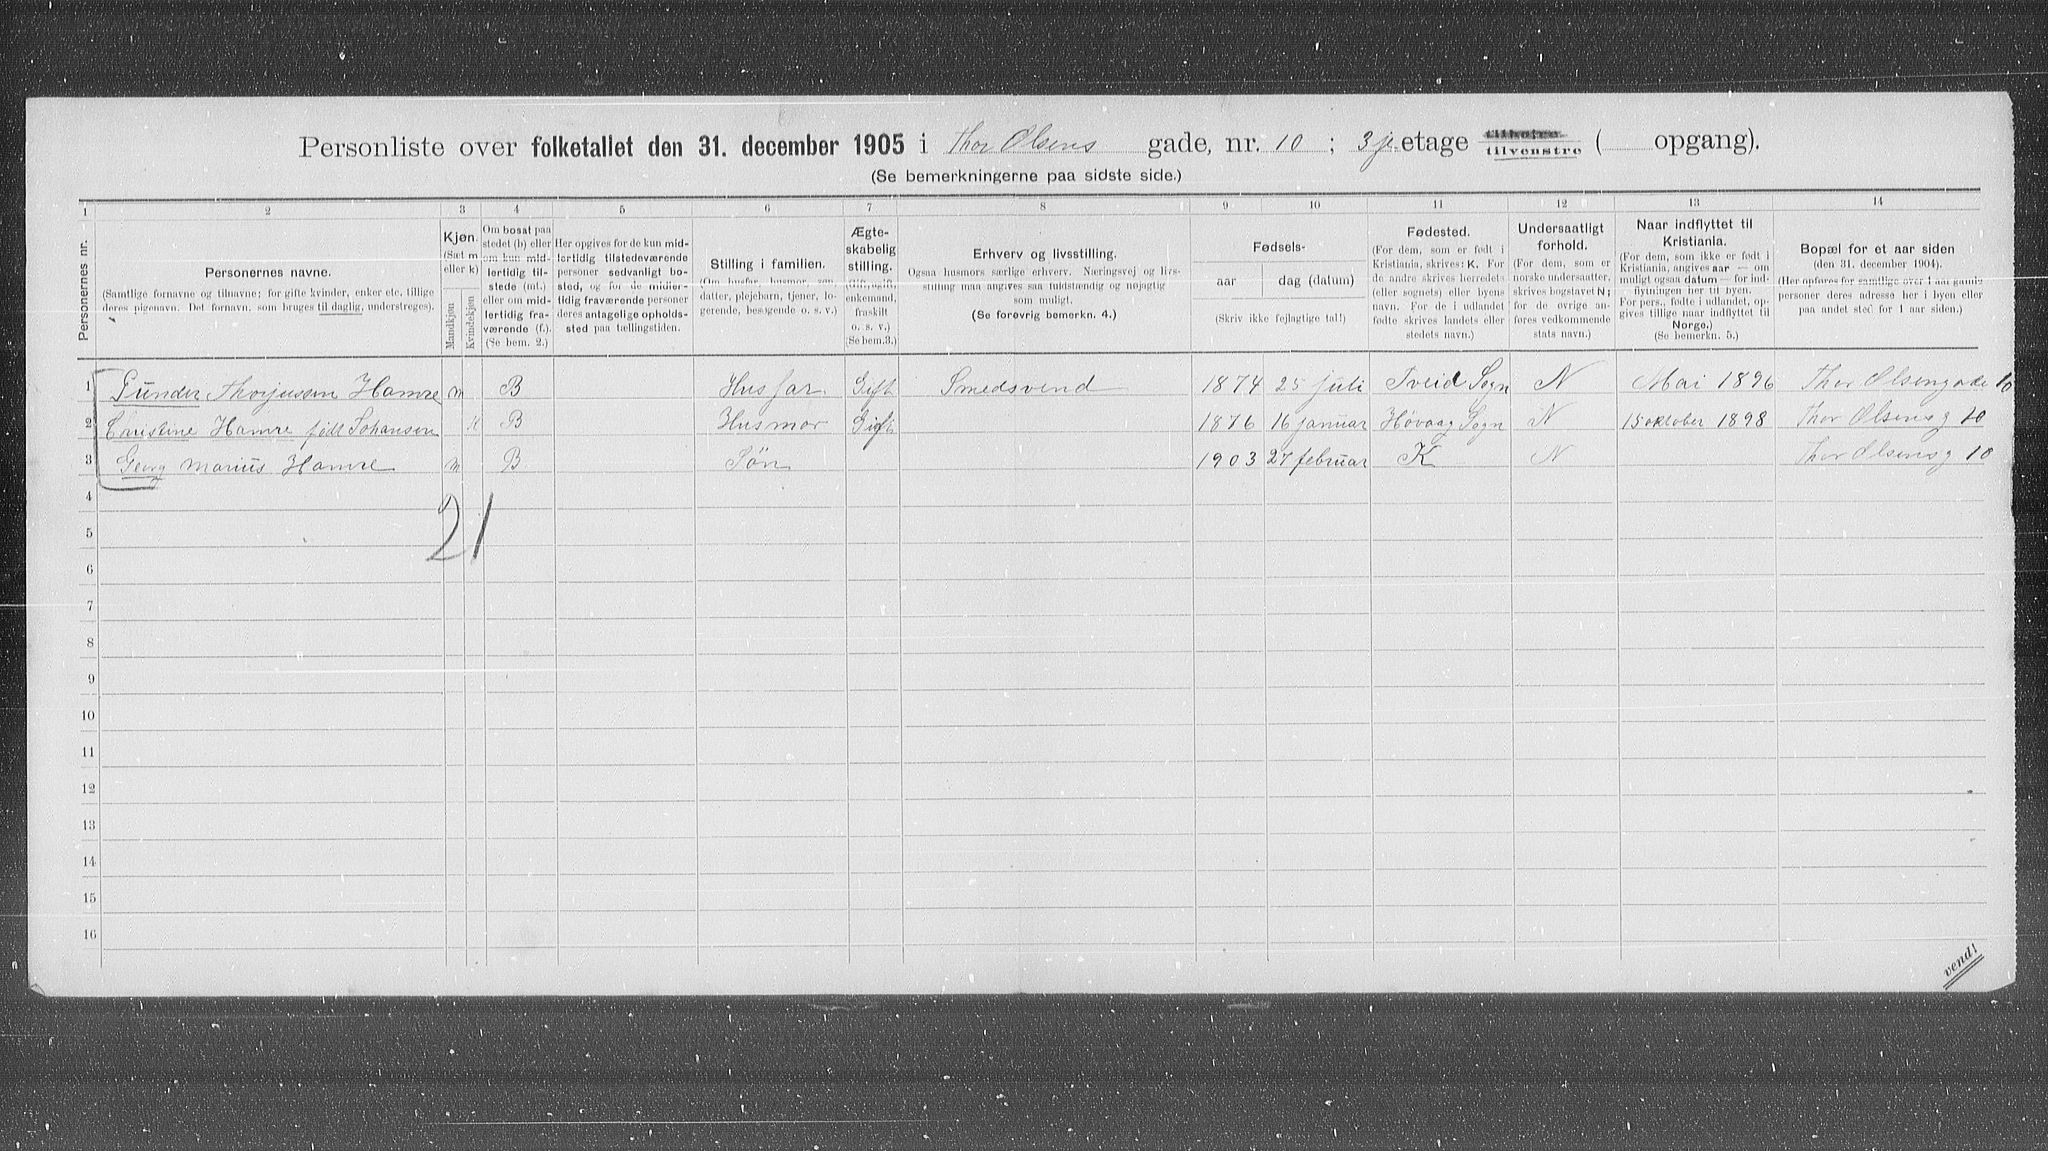 Personliste over folketallet den 31. december 1905 i Thor Olsens gade, nr. 10 ; 3je etage tilhøire tilvenstre ( opgang).
(Se bemerkningerne paa sidste side.)
1 2 3 4 5 6 7 8 9 10 11 12 13 14
Personernes nr.
Personernes navne.
(Samtlige fornavne og tilnavne; for gifte kvinder, enker etc. tillige
deres pigenavn. Det fornavn, som bruges til daglig, understreges).
Kjøn.
(Sæt m
eller k)
Mandkjøn
Kvindekjøn
Om bosat paa
stedet (b) eller
om kun mid-
lertidig til-
stede (mt.)
eller om mid-
lertidig fra-
værende (f.).
(Se bem. 2.)
Her opgives for de kun mid-
lertidig tilstedeværende
personer sedvanligt bo-
sted, og for de midler-
tidig fraværende personer
deres antagelige opholds-
sted paa tællingstiden.
Stilling i familien.
(Om husfar, husmor, søn,
datter, plejebarn, tjener, lo-
gerende, besøgende o. s. v.)
Ægte-
skabelig
stilling.
(Om gift,
enkemand,
fraskilt
o. s. v.)
(Se bem.3.)
Erhverv og livsstilling.
Ogsaa husmors særlige erhverv. Næringsvej og livs-
stilling maa angives saa fuldstændig og nøjagtig
som muligt.
(Se forøvrig bemerkn. 4.)
Fødsels-
aar dag (datum)
(Skriv ikke fejlagtige tal!)
Fødested.
(For dem, som er født i
Kristiania, skrives: K. For
de andre skrives herredets
(eller sognets) eller byens
navn. For de i udlandet
fødte skrives landets eller
stedets navn.)
Undersaatligt
forhold.
(For dem, som er
norske undersaatter,
skrives bogstavet N;
for de øvrige an-
føres vedkommende
stats navn.)
Naar indflyttet til
Kristiania.
(For dem, som ikke er født i
Kristiania, angives aar — om
muligt ogsaa datum — for ind-
flytningen her til byen.
For pers., fødte i udlandet, op-
gives tillige naar indflyttet til
Norge.)
(Se bemerkn. 5.)
Bopæl for et aar siden
(den 31. december 1904).
(Her opføres for samtlige over 1 aar gamle
personer deres adresse her i byen eller
paa andet sted for 1 aar siden.)
1 Gunder Thorjussen Hamre m B Husfar Gift Smedsvend 1874 25 juli Tveid Sogn N Mai 1896 Thor Olsengade 10
2 Cristine Hamre født Johansen K B Husmor Gift 1876 16 januar Høvaag Sogn N 15 oktober 1898 Thor Olsensg 10
3 Georg Marius Hamre m B Søn 1903 27 februar K N Thor Olsensg 10
4
21
5
6
7
8
9
10
11
12
13
14
15
16
vend!